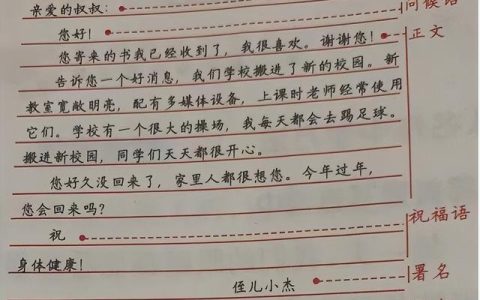 亲爱的叔叔：
问候语
您好！
您寄来的书我已经收到了，我很喜欢。谢谢您！
正文
告诉您一个好消息，我们学校搬进了新的校园。新
教室宽敞明亮，配有多媒体设备，上课时老师经常使用
它们。学校有一个很大的操场，我每天都会去踢足球。
搬进新校园，同学们天天都很开心。
您好久没回来了，家里人都很想您。今年过年，
您会回来吗？
祝福语
祝
身体健康！
署名
侄儿小杰